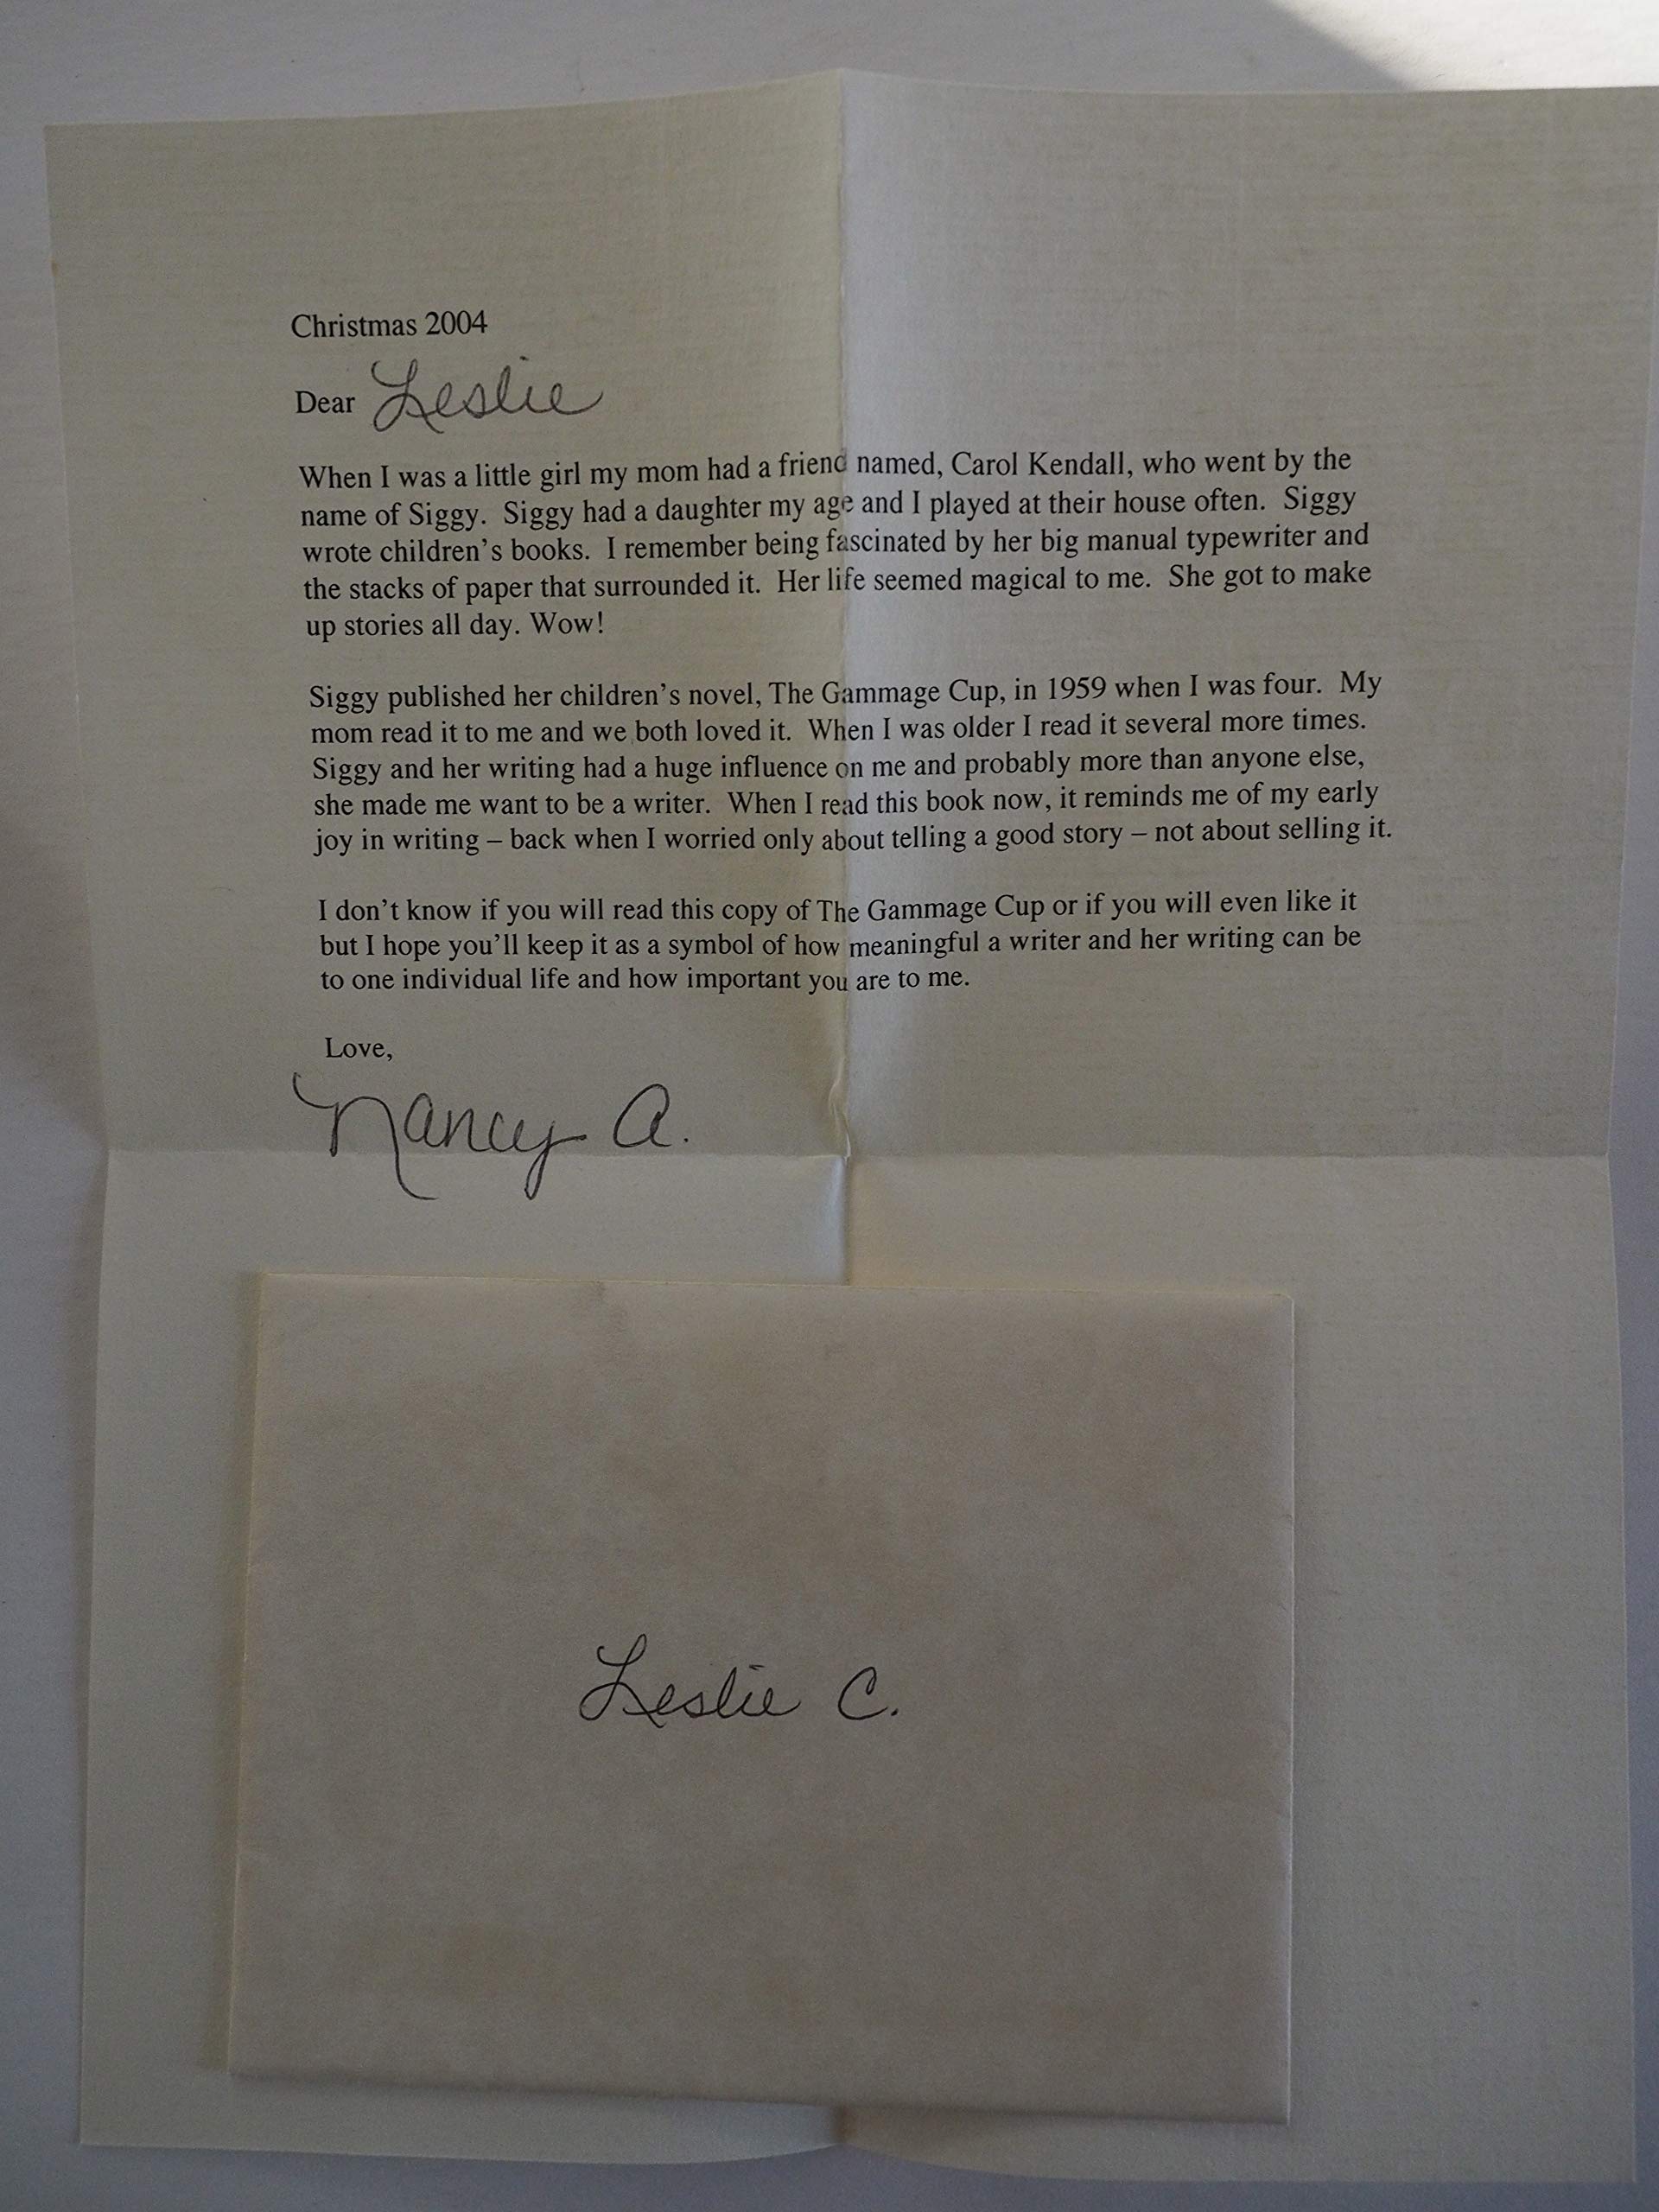 Christmas 2004
Dear Leslie
When I was a little girl my mom had a friend named, Carol Kendall, who went by the
name of Siggy.  Siggy had a daughter my age and I played at their house often.  Siggy
wrote children's books.  I remember being fascinated by her big manual typewriter and
the stacks of paper that surrounded it.  Her life seemed magical to me.  She got to make
up stories all day. Wow!
Siggy published her children's novel, The Gammage Cup, in 1959 when I was four.  My
mom read it to me and we both loved it.  When I was older I read it several more times.
Siggy and her writing had a huge influence on me and probably more than anyone else,
she made me want to be a writer.  When I read this book now, it reminds me of my early
joy in writing – back when I worried only about telling a good story – not about selling it.
I don't know if you will read this copy of The Gammage Cup or if you will even like it
but I hope you'll keep it as a symbol of how meaningful a writer and her writing can be
to one individual life and how important you are to me.
Love,
Nancy A.
Leslie C.